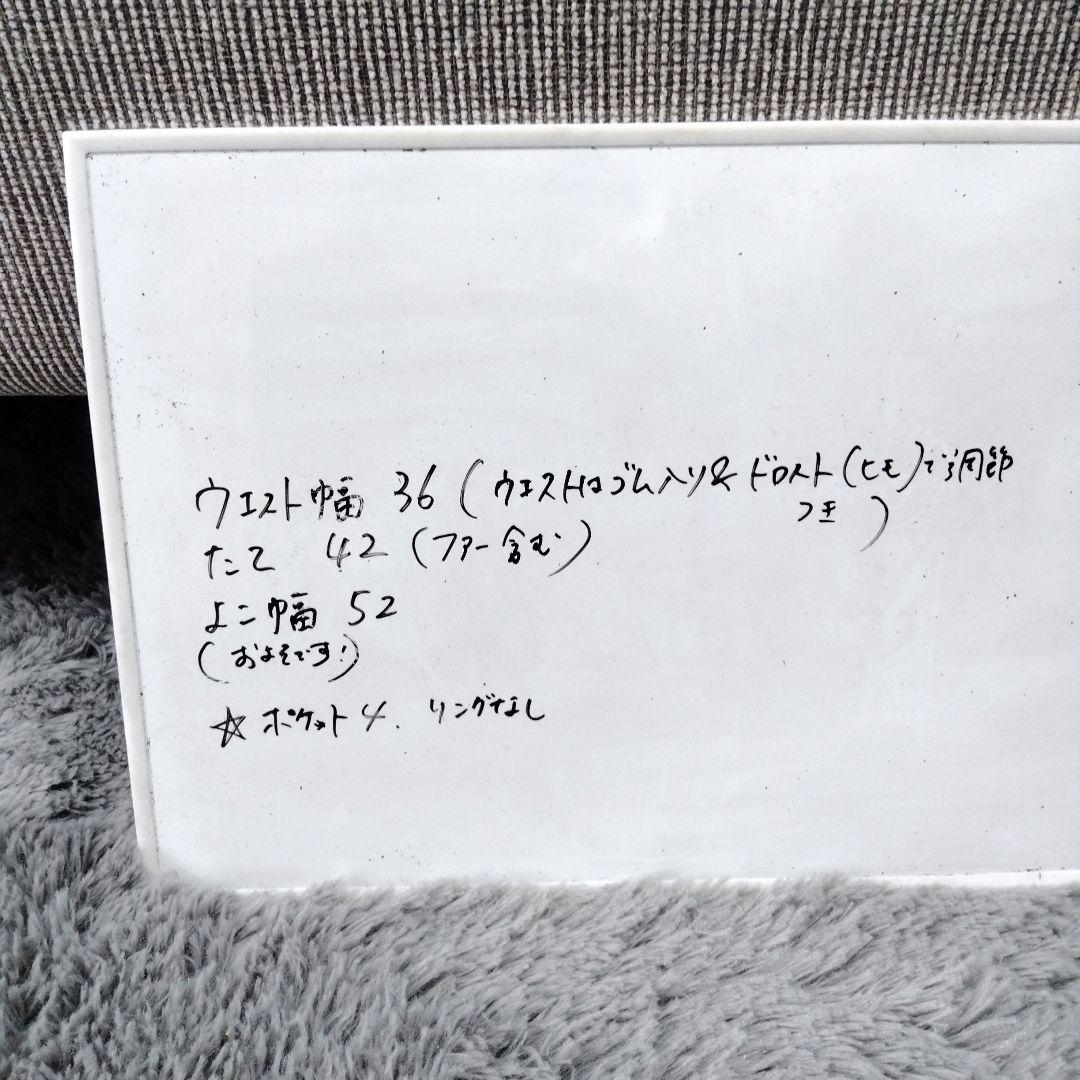 ウエスト幅 36 (ウエストはゴム入り& ドロスト(ヒモ)で調節
つき)
たて 42 (ファー含む)
よこ幅 52
(およそです!)
☆ ポケット4. リングなし